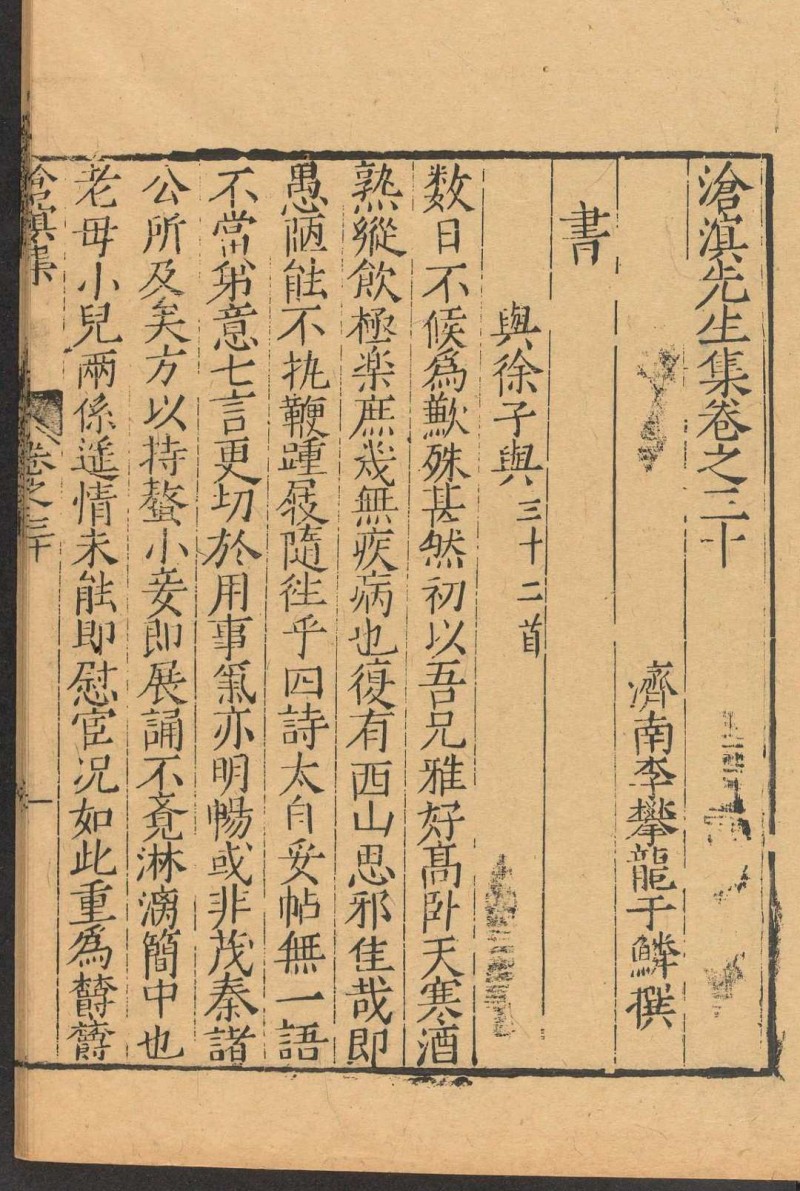 滄溟先生集卷之三十
濟南李攀龍于鱗撰
書
與徐子與三十二首
数日不候爲歉殊甚然初以吾兄雅好髙卧天寒酒
熟縱飲極楽庶幾無疾病也復有西山思邪佳哉即
愚陋能不執鞭踵屐隨徃乎四詩太白妥帖無一語
不當弟意七言更切於用事氣亦明暢或非茂秦諸
公所及矣方以持螯小妾即展誦不覔淋漓簡中也
老母小兒兩係遥情未能即慰宦况如此重爲欝欝
滄溟集
卷之三十
一